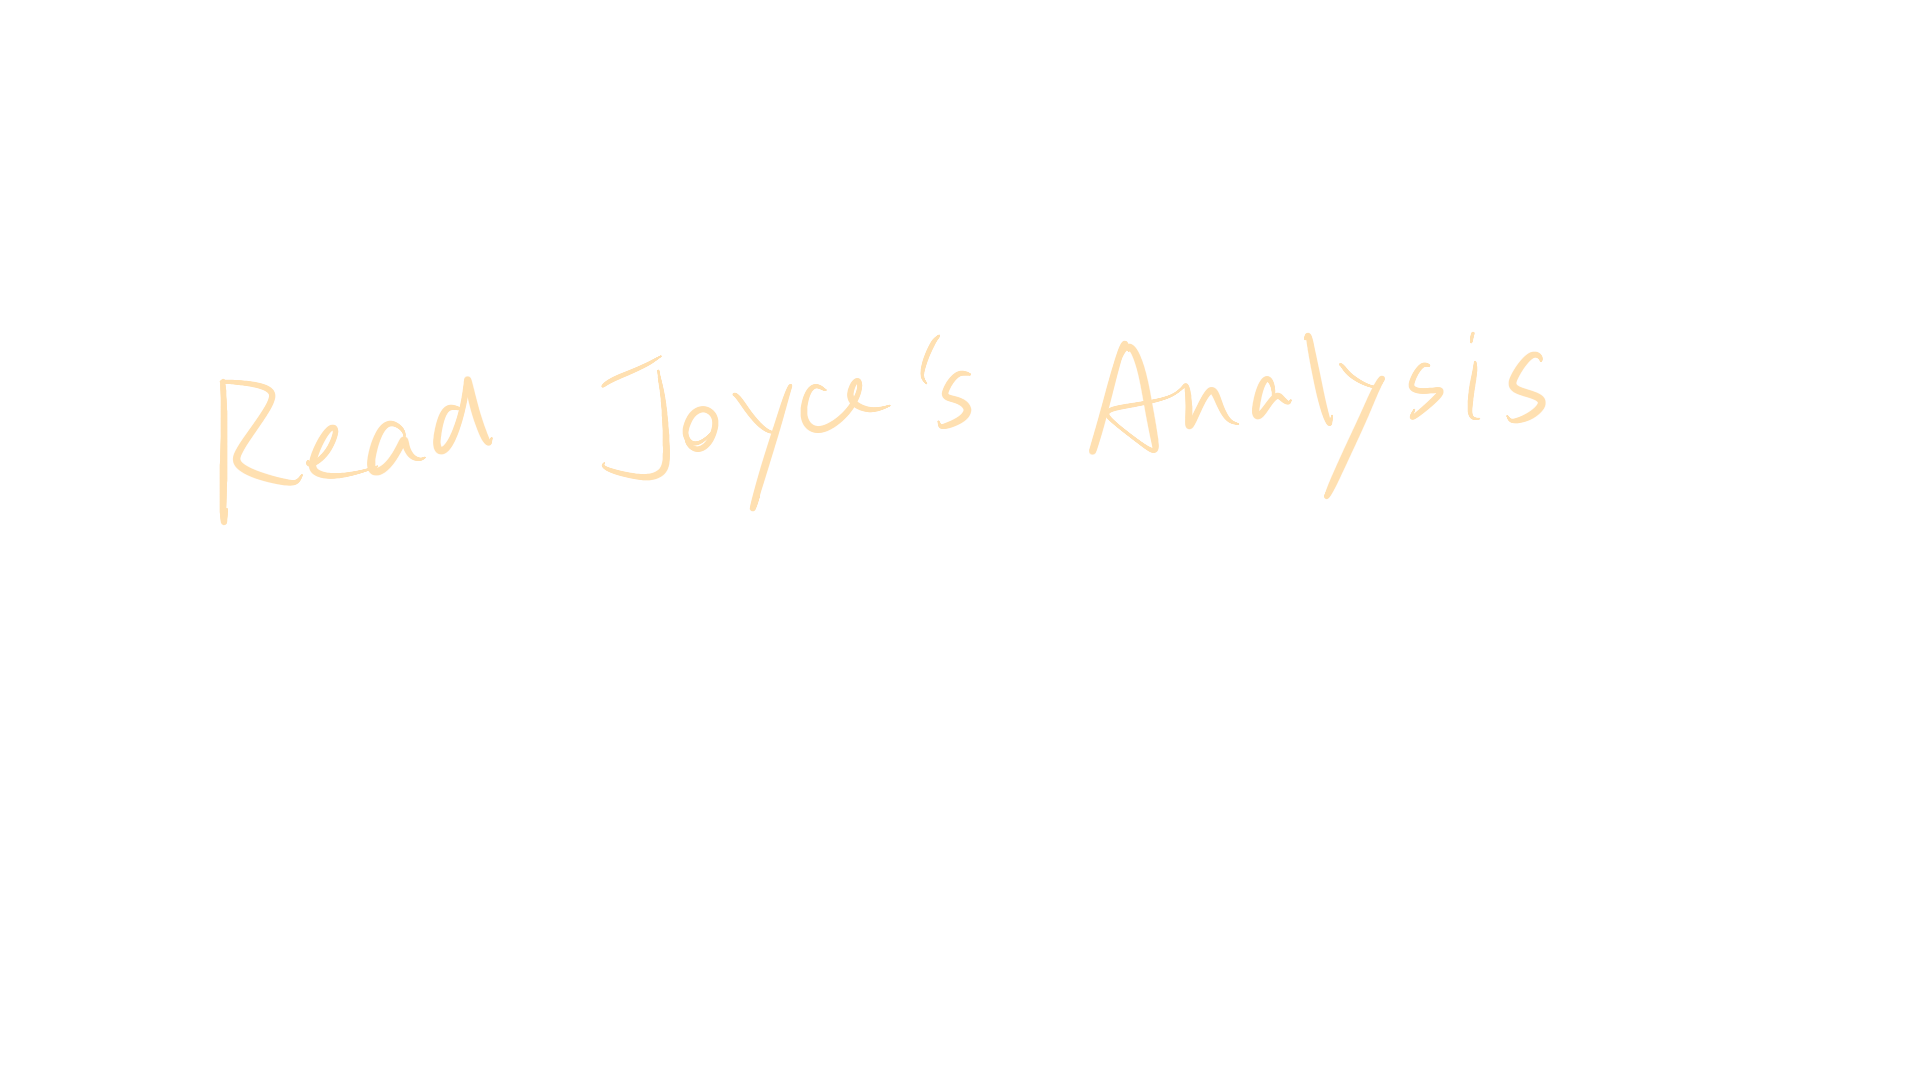 Read Joyce's Analysis